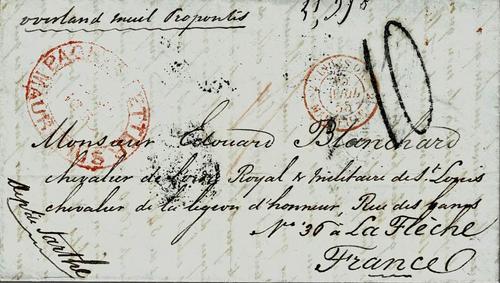 overland mail Propontis
PACKET LETTER
MAURITIUS
10
Monsieur Edouard Blanchard
chevalier de l'ordre Royal & militaire de St Louis
chevalier de la légion d'honneur, Rue des
No 36 à La Flèche
France
Dept Sarthe